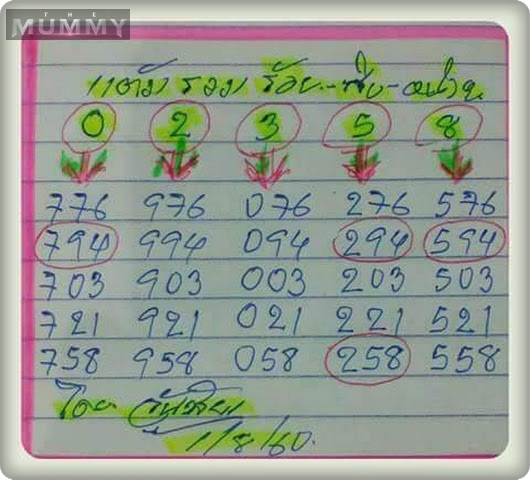 THE
MUMMY
0 2 3 5 8
776 976 076 276 576
794 994 094 294 594
703 903 003 203 503
721 921 021 221 521
758 958 058 258 558
โดย
1/8/60.